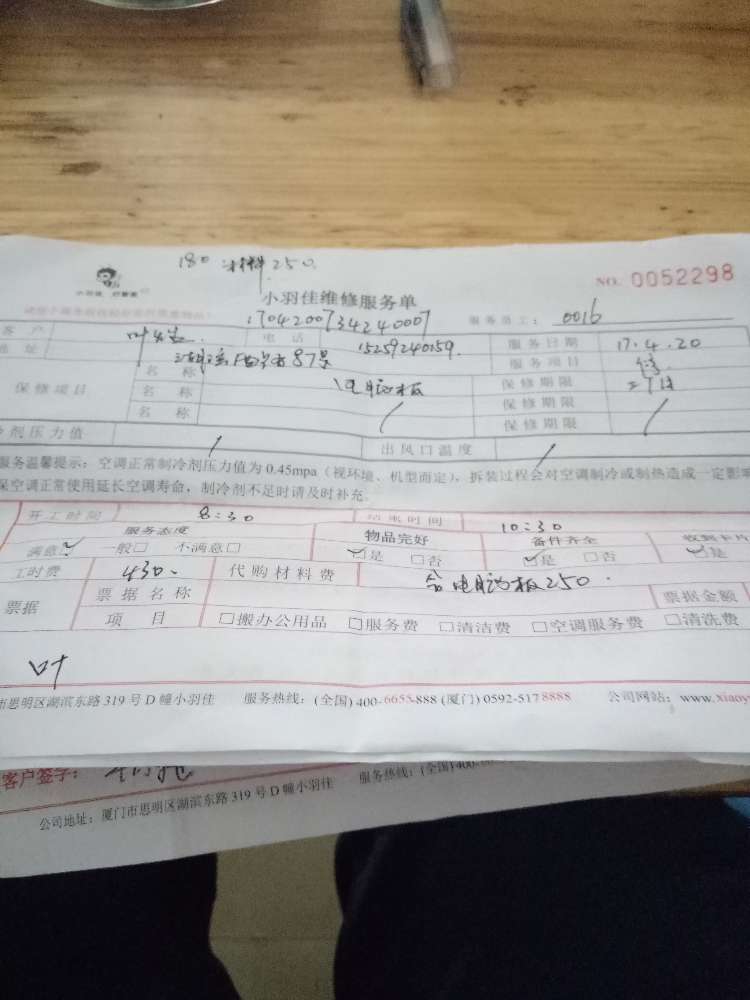 180 材料250.
小羽佳 好管家
NO. 0052298
小羽佳维修服务单
1704200734240007
服务员工: 0016
客户 叶 电话 15259240159. 服务日期 17.4.20
地址 87号 服务项目
保修项目 名称 保修期限
名称 电脑板 保修期限
名称 / 保修期限 /
剂压力值 / 出风口温度 /
服务温馨提示:空调正常制冷剂压力值为0.45mpa(视环境、机型而定),拆装过程会对空调制冷或制热造成一定影响
保空调正常使用延长空调寿命,制冷剂不足时请及时补充.
开工时间 8:30 结束时间 10:30
服务态度 物品完好 备件齐全 收到卡片
满意☑ 一般□ 不满意□ ☑是 □否 ☑是 □否 ☑是
工时费 430. 代购材料费 含电脑板250.
票据 票据名称 票据金额
项目 □搬办公用品 □服务费 □清洁费 □空调服务费 □清洗费
叶
市思明区湖滨东路319号D幢小羽佳 服务热线:(全国)400-6655-888 (厦门)0592-5178888 公司网站:www.xiaoy
客户签字:
公司地址:厦门市思明区湖滨东路319号D幢小羽佳 服务热线:(全国)400-